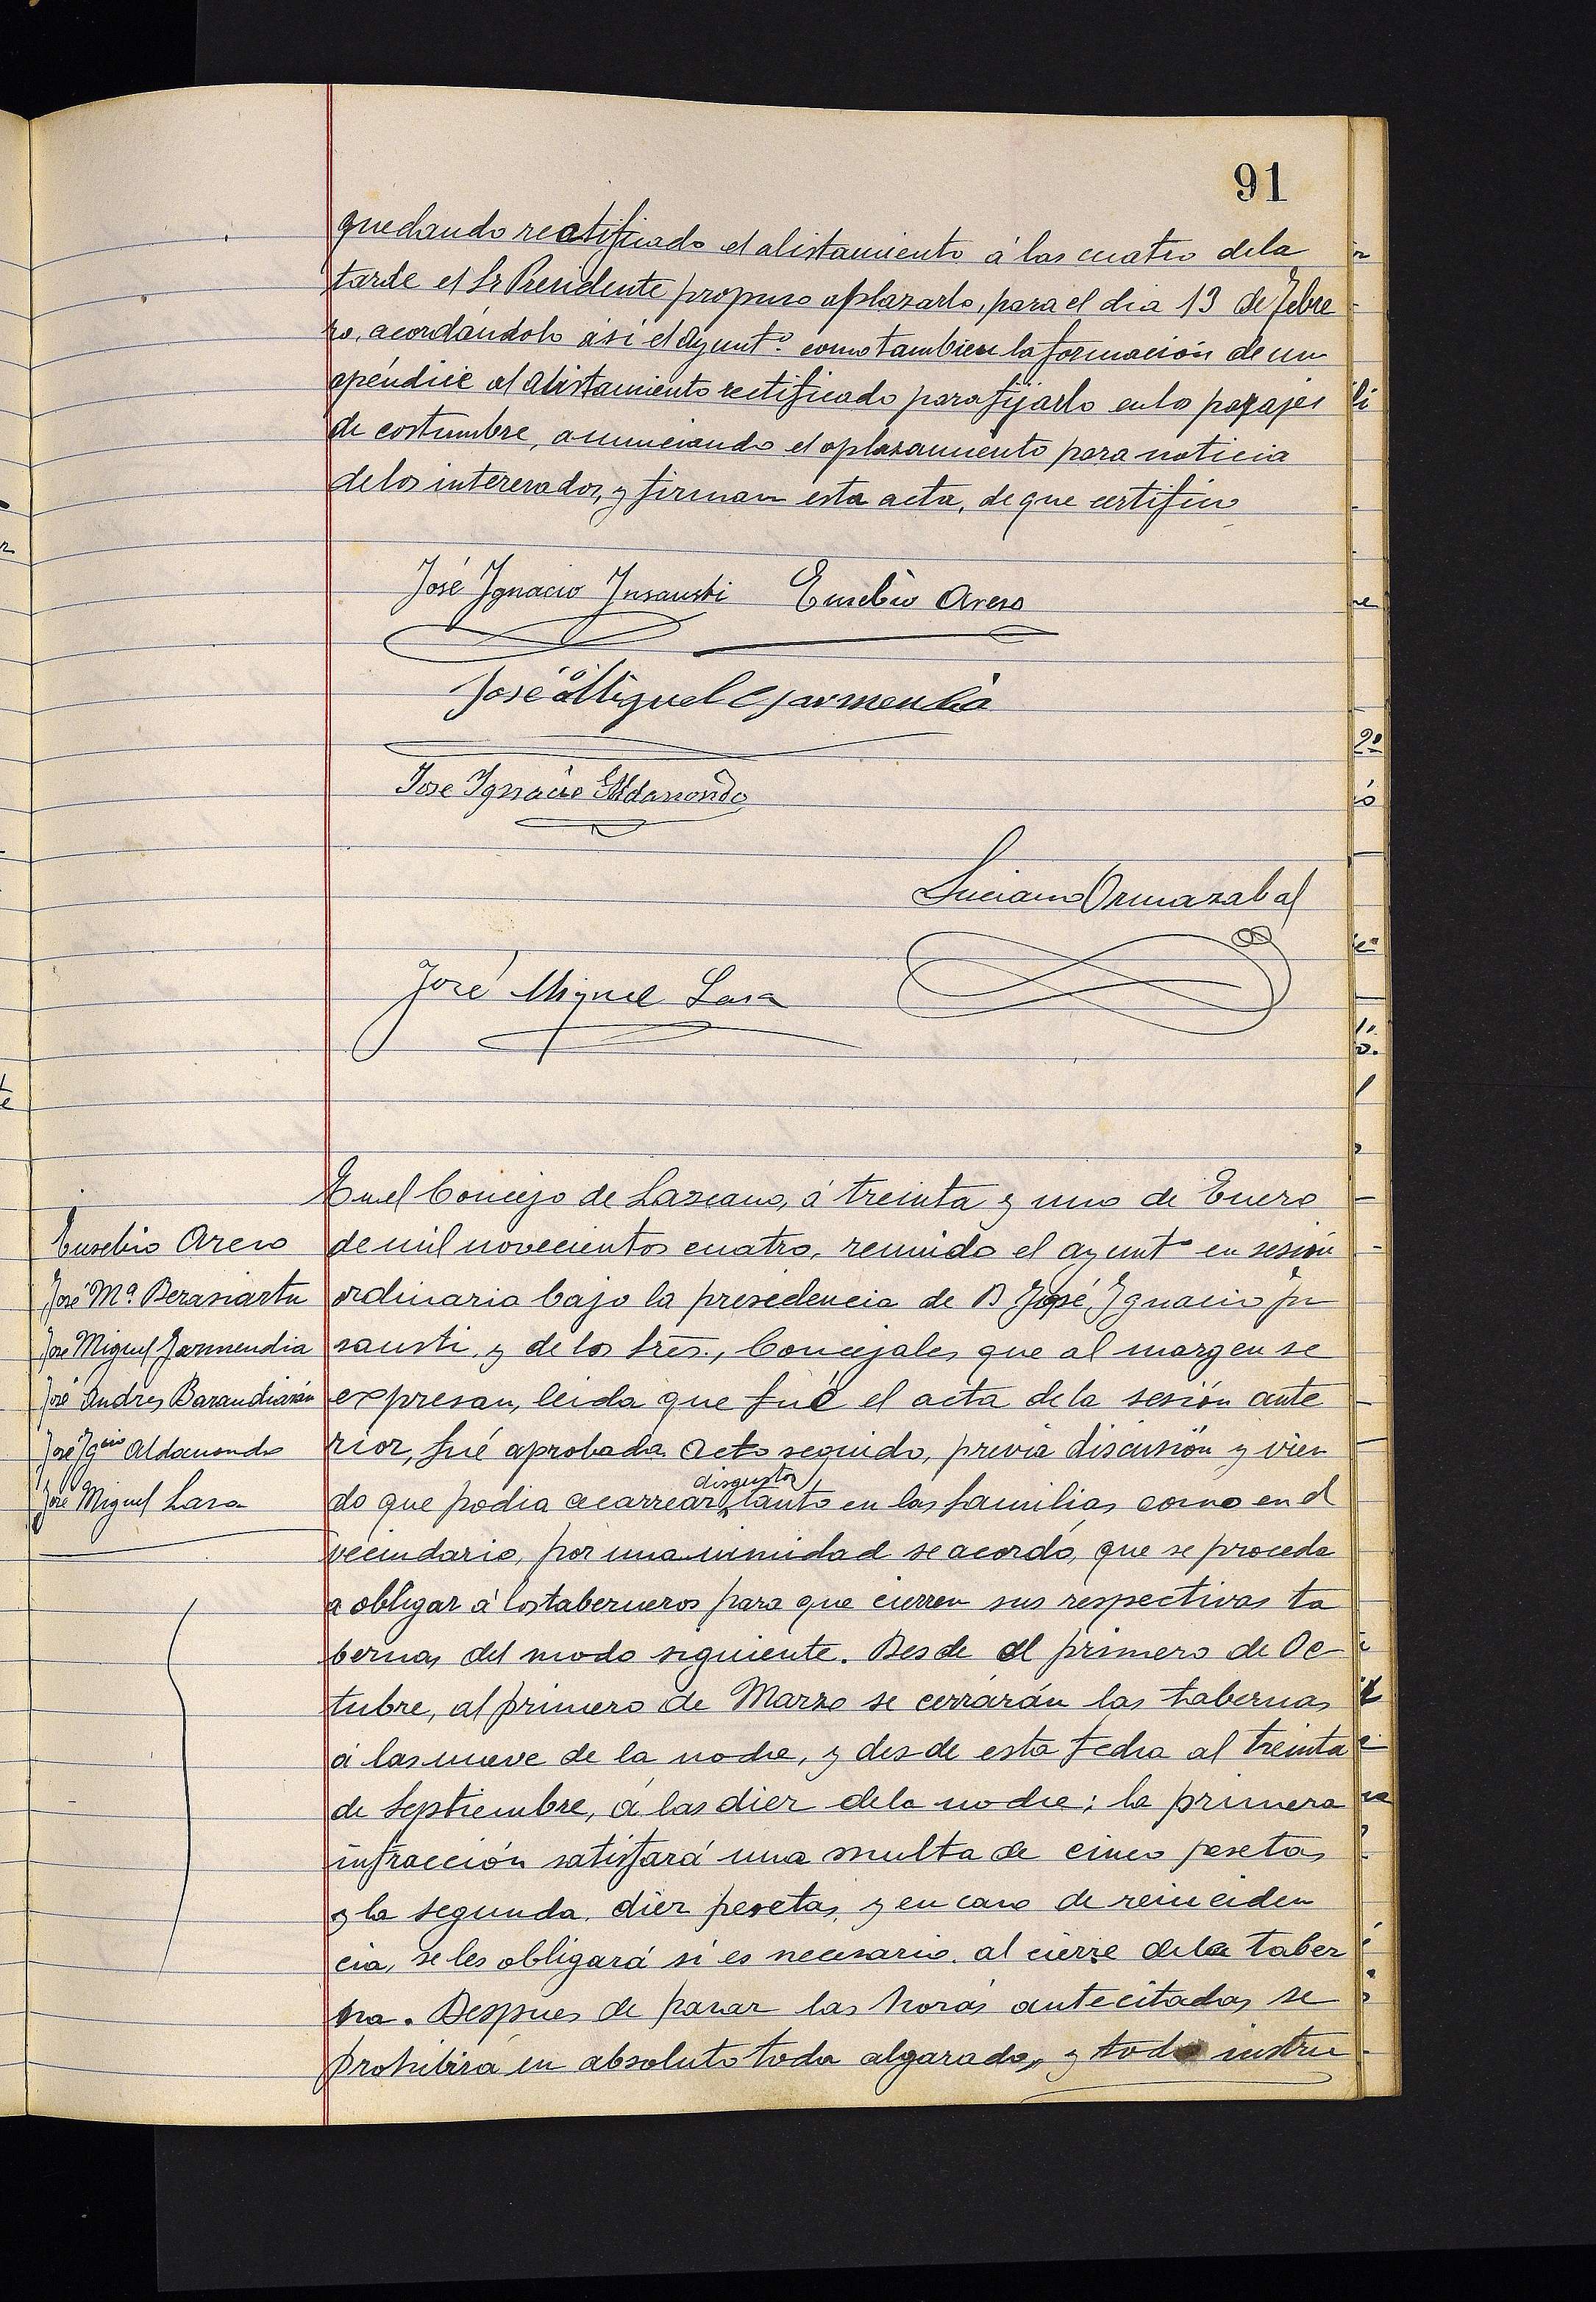 91
quedando reatificado el alistamiento á las cuatro dela
tarde el Sr Presidente propuso aplazarlo, para el dia 13 de Febre
ro, acordándolo ási el Ayuntº. como tambien la formación de un
apéndice al alistamiento rectificado para fijarlo en lo parajes
de costumbre, anunciando el aplazamiento para noticia
de los interesados, y firman esta acta, de que certifico
José Ignacio Insausti Eusebio Areso
José Miguel Garmendia
Jose Ignacio Aldanondo
Luciano Ormazabal
José Miguel Lasa
En el Concejo de Lazcano, á treinta y uno de Enero
de mil novecientos cuatro, reunido el ayuntº en sesión
ordinaria bajo la presedencia de D José Ignacio In
sausti, y de los Sres., Concejales que al margen se
expresan, leida que fué el acta de la sesión ante
rior, fué aprobada. Acto seguido, previa discusión y vien
disgustos
do que podia acarrear, tanto en las familias como en el
vecindario, por una unimidad se acordó, que se proceda
a obligar á los taberneros para que cierren sus respectivas ta
bernas del modo siguiente. Desde el primero de Oc
tubre, al primero de Marzo se cerrarán las tabernas
á las nueve de la noche, y desde esta fecha al treinta
de Septiembre, á las diez dela noche; la primera
infracción satisfará una multa de cinco pesetas
y la segunda, diez pesetas, y en caso de reinciden
cia, se les obligará si es necesario al cierre de la taber
na. Despues de pasar las horas antecitadas se
prohibirá en absoluto toda algarada, y todo instru
Eusebio Areso
José Mª. Berasiartu
José Miguel Garmendia
José Andres Barandiarán
José Igcio Aldanondo
José Miguel Lasa